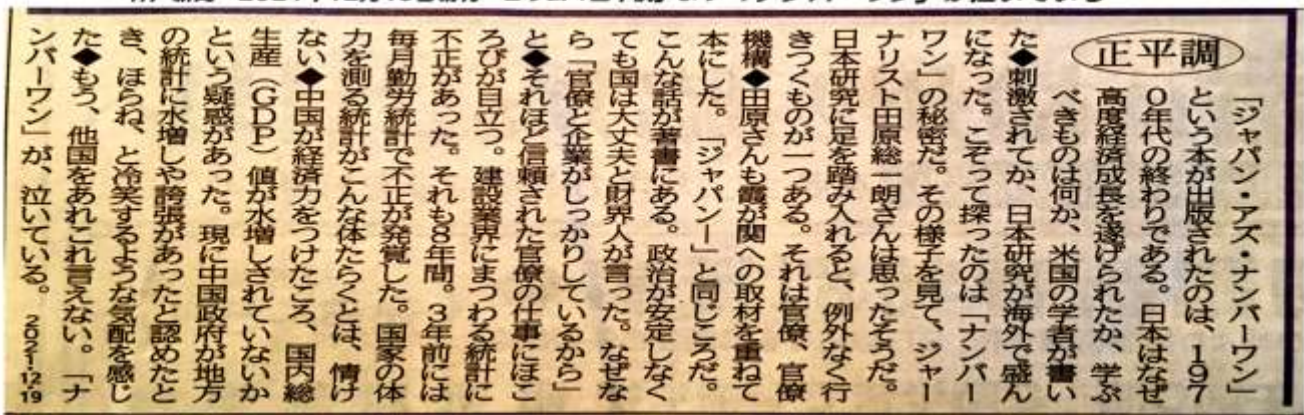 正平調
「ジャパン・アズ・ナンバーワン」
という本が出版されたのは、197
0年代の終わりである。日本はなぜ
高度経済成長を遂げられたか、学ぶ
べきものは何か、米国の学者が書い
た◆刺激されてか、日本研究が海外で盛ん
になった。こぞって探ったのは「ナンバー
ワン」の秘密だ。その様子を見て、ジャー
ナリスト田原総一朗さんは思ったそうだ。
日本研究に足を踏み入れると、例外なく行
きつくものが一つある。それは官僚、官僚
機構◆田原さんも霞が関への取材を重ねて
本にした。「ジャパン―」と同じころだ。
こんな話が著書にある。政治が安定しなく
ても国は大丈夫と財界人が言った。なぜな
ら「官僚と企業がしっかりしているから」
と◆それほど信頼された官僚の仕事にほこ
ろびが目立つ。建設業界にまつわる統計に
不正があった。それも8年間。3年前には
毎月勤労統計で不正が発覚した。国家の体
力を測る統計がこんな体たらくとは、情け
ない◆中国が経済力をつけたころ、国内総
生産（GDP）値が水増しされていないか
という疑惑があった。現に中国政府が地方
の統計に水増しや誇張があったと認めたと
き、ほらね、と冷笑するような気配を感じ
た◆もう、他国をあれこれ言えない。「ナ
ンバーワン」が、泣いている。
2021・12・19